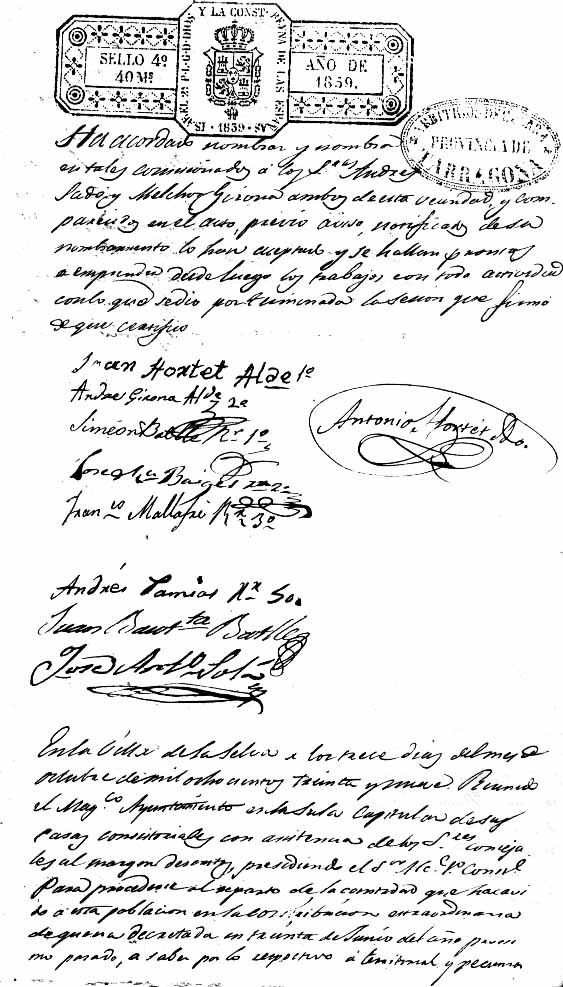 Y LA CONST. REYNA DE LAS ESPAÑAS
ISABEL 2ª P. L. G. D DIOS
SELLO 4º
40 Ms
AÑO DE
1839.
1839
ARBITRIOS DE
PROVINCIA DE
TARRAGONA
Ha acordado nombrar y nombra
en tales comisionados a los Sres Andres
y Melchor Girona ambos de esta vecindad, y com-
parecidos en el acto, previo aviso, notificados de su
nombramiento lo han aceptado y se hallan prontos
a emprender desde luego los trabajos con todo
con lo que se dio por terminada la sesion que firmó
de que certifico
Juan Hortet Alde 1º
Andres Girona Alde 2º
Simeon Batlle Rr 1º
Antonio Hortet Sro.
Jose Ma Baiges 2º
Franco Mallafré Rr 3º
Andrés Rr 5o.
Juan Bautta Batlle
José Anto Solé
En la Villa de la Selva a los trece dias del mes de
octubre de mil ochocientos treinta y nueve Reunido
el Magco Ayuntamiento en la Sala Capitular de sus
Casas consistoriales con asistencia de los Sres conceja-
les al margen descritos, presidiendo el Sor Alce 1º Constl
Para procederse al reparto de la cantidad que ha cavi-
do a esta poblacion en la contribucion extraordinaria
de guerra decretada en treinta de Junio del año procsi-
mo pasado, a saber por lo respectivo a territorial y pecuaria